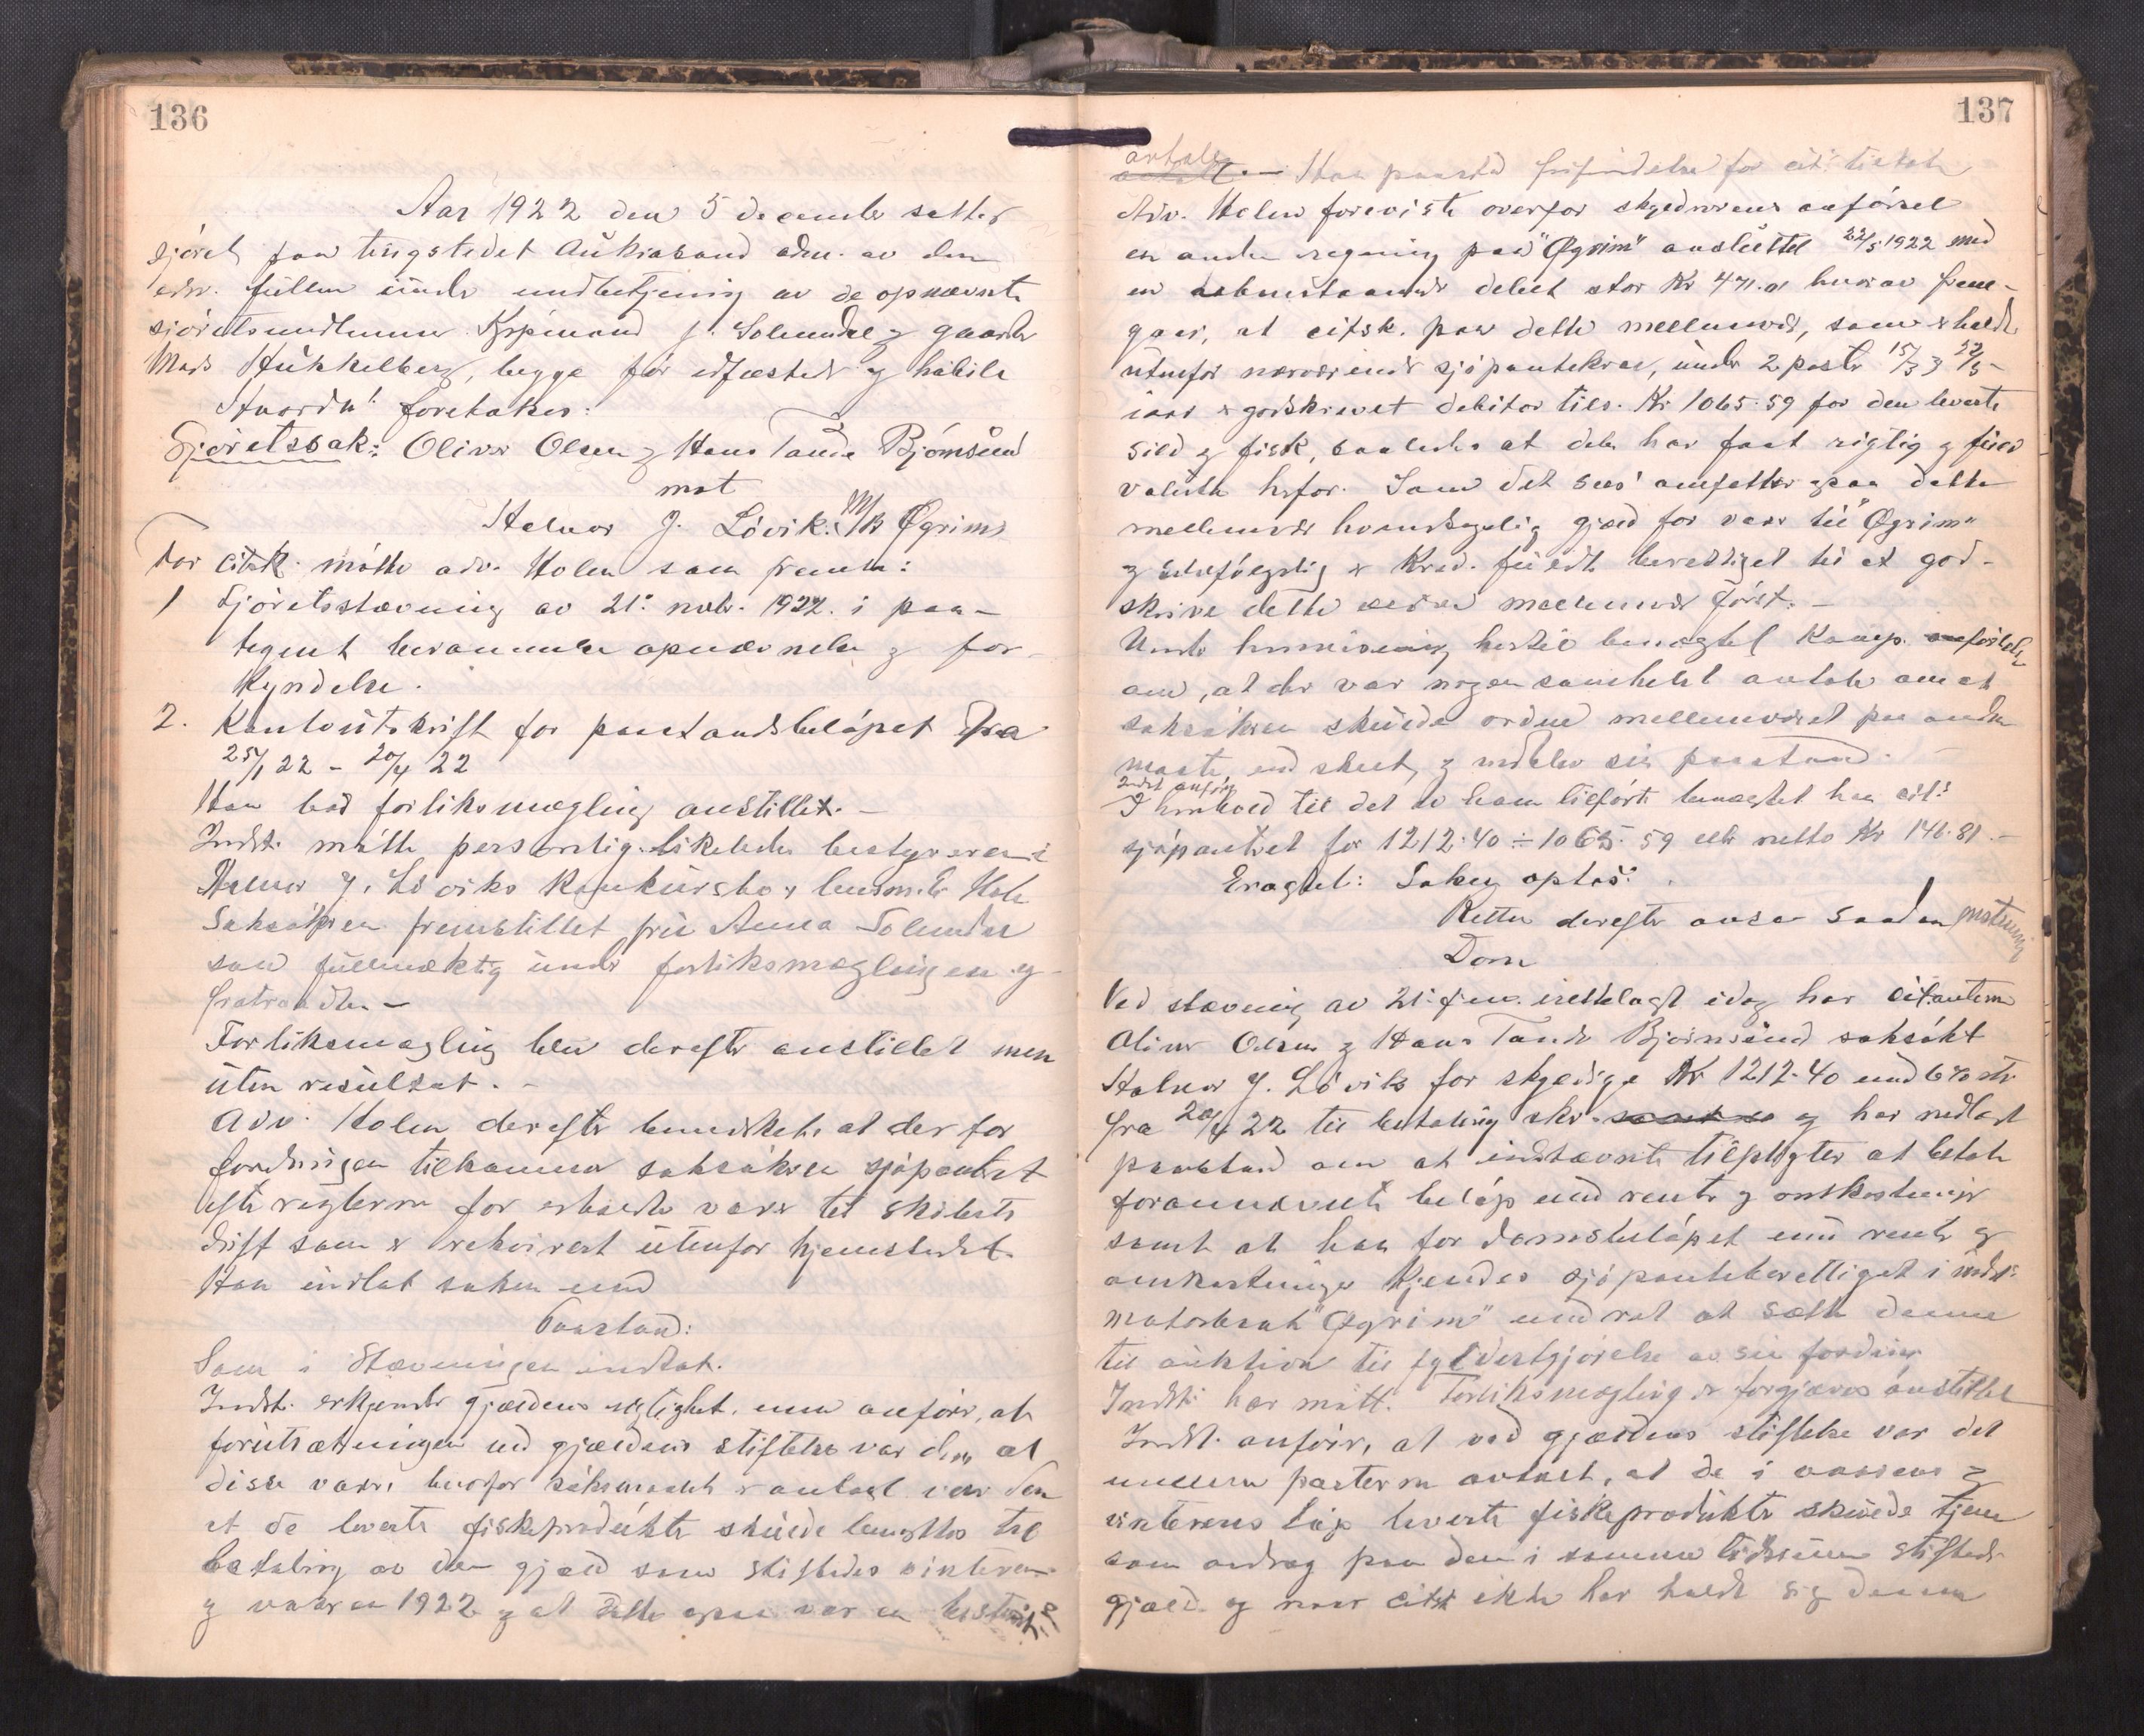 136
Aar 1922 den 5 december sattes
sjöret paa tingstedet Aukrasand adm. av den
edsv. fullm under medbetjening av de opnævnte
sjöretsmedlemmer Kjøpmand J. Solemdal og gaardbr
Mads Hukkelberg, begge før edfæstede og habile
Hvorda! foretakes:
Sjöretssak: Oliver Olsen og Hans Tande Bjørnsund
mot
Halvor J. Lövik: M/K Øgrim
For citsk. mötte adv. Holen som freml:
1 Sjöretsstævning av 21: novbr. 1922. i paa-
tegnet berammelse opnævnelse og for-
kyndelse.
2. Kontoutskrift for paastandsbelöpet fra
25/1 22 - 20/4 22
Han bad forliksmægling anstillet. -
Indst. mötte personlig. likeledes bestyreren i
Halvor J. Löviks Konkursbo, lensm. Hole
Saksökeren fremstillet frk Anna Solemdal
som fuldmæktig under forliksmæglingen og
fratraadte. -
Forliksmægling blev derefter anstillet men
uten resultat. -
Adv. Holen derefter bemerket at der for
fordringen tilkommer saksökeren sjöpanteret
efter reglerne for erholdte varer til skibets
drift som er rekvirert utenfor hjemstedet.
Han indlot saken med
Paastand:
Som i Stævningen indtat.
Indst. erkjender gjældens rigtighet, men anförer, at
forutsætningen ved gjældens stiftelse var den, at
disse varer hvorfor söksmaalet er anlagt var den
at de leverte fiskeprodukter skulde benyttes til
betaling av den gjæld som stiftedes vinteren
og vaaren 1922 og at dette ogsaa var en bestemt
137
avtale
Han paastod frifindelse for cit: tiltale
Adv. Holen foreviste overfor skyldnerens anförsel
en anden regning paa "Øgrim" avsluttet 22/5 1922 med
en debet stor Kr 471.01 hvorav frem-
gaar, at citsk. paa dette mellemvær, som er holdt
utenfor nærværende sjöpantekrav, under 2 poster 15/3 og 22/5
iaar er godskrevet debitor tils. Kr 1065.59 for den leverte
sild og fisk, saaledes at den har faat rigtig og fuld
valuta herfor. Som det sees omfatter ogsaa dette
mellemvær hovedsagelig gjæld for varer til "Øgrim"
og selvfølgelig er Kred. fuldt berettiget til at god-
skrive dette mellemvær först. -
Under henvisning hertil benegtet Komp.
om, at der var nogensomhelst avtale om at
saksökeren skulde ordne mellemværet paa anden
maate, end skeet, og nedla sin paastand. -
Indst anförer
I henhold til det av ham tilförte benegtet han cit:
sjöpanteret for 1212.40 ÷ 1065.59 eller netto Kr 146.81. -
Eragtet: Saken optas:
Retten derefter avsa saadan enstemmig
Dom
Ved stævning av 21: f.m. irettelagt idag har citanterne
Oliver Olsen og Hans Tande Bjørnsund saksökt
Halvor J. Lövik for skyldige Kr 1212.40 med 6% rte
fra 20/4 22 til betaling sker og har nedlagt
paastand om at indstævnte tilpligtes at betale
forannævnte belöp med renter og omkostninger
samt at han for domsbelöpet med renter og
omkostninger kjendes sjöpanteberettiget i indst:
motorbaat "Øgrim" med ret at sætte denne
til auktion til fyldestgjörelse av sin fordring.
Indst: har mött. Forliksmægling er forgjæves anstillet
Indst. anförer, at ved gjældens stiftelse var det
mellem parterne avtalt, at de i vaarens og
vinterens löp leverte fiskeprodukter skulde tjene
som avdrag paa den i samme tidsrum stiftede
gjæld og naar citsk ikke har holdt sig denne